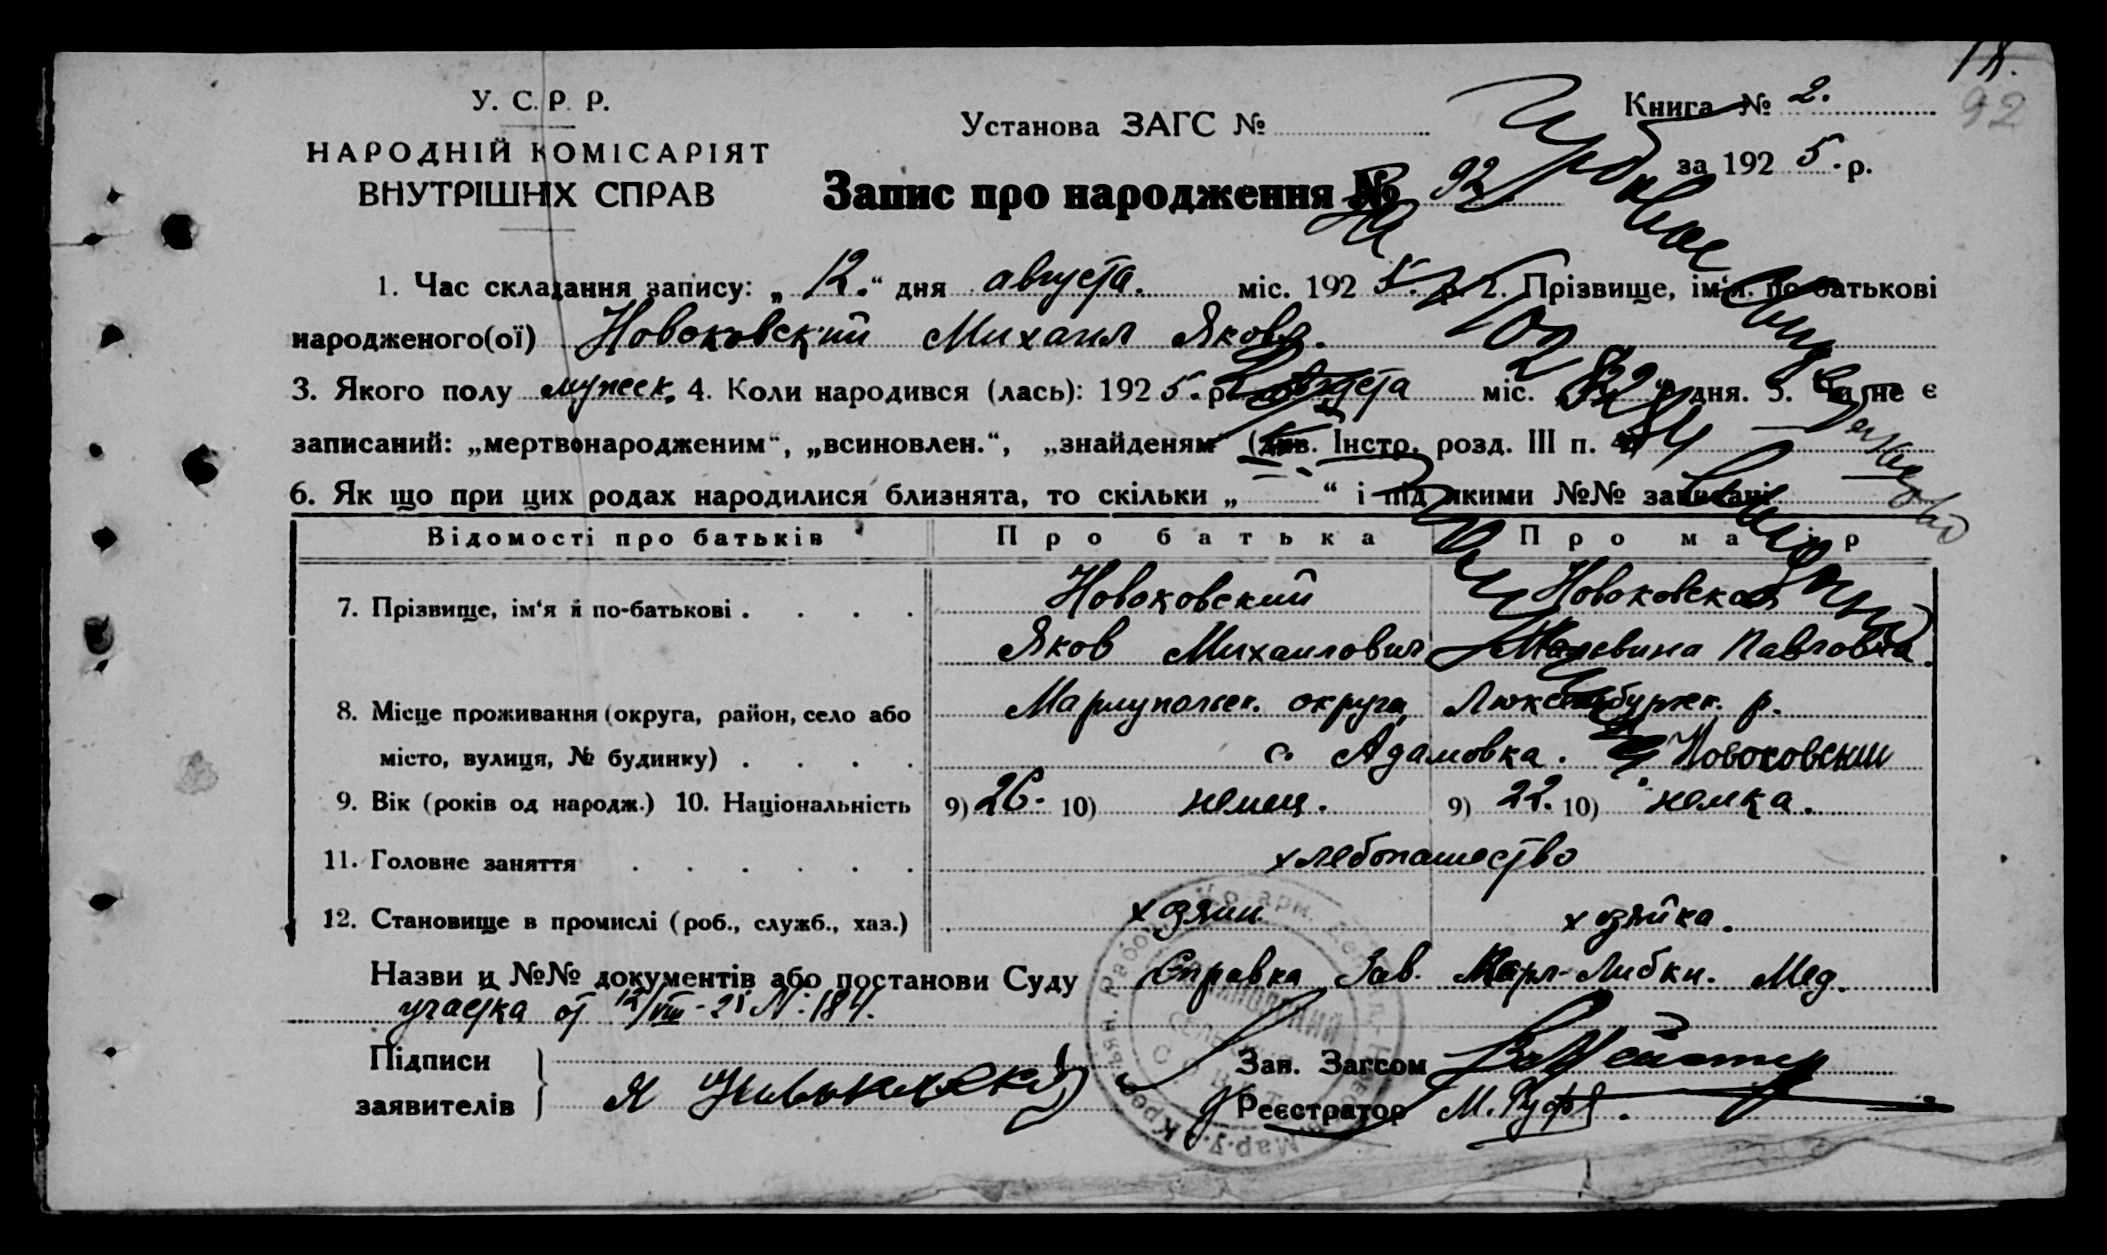 У. С. Р. Р.
НАРОДНІЙ КОМІСАРІЯТ
ВНУТРІШНІХ СПРАВ
Установа ЗАГС №
Книга № 2.
92
за 192 5. р.
Запис про народження № 92
1. Час складання запису: „ 12. “ дня августа. міс. 192 5. р. 2. Прізвище, ім‘я, по-батькові
народженого(ої) Новоковский Михаил Яковл.
3. Якого полу мужеск. 4. Коли народився (лась): 192 5. р. августа міс. дня. 5. Чи не є
записаний: „мертвонародженим“, „всиновлен.“, „знайденям“ (див. Інстр. розд. III п. 4)
6. Як що при цих родах народилися близнята, то скільки „ “ і під якими №№ записані
Відомості про батьків Про батька Про матір
7. Прізвище, ім‘я й по-батькові . . . . Новоковский Новоковская
Яков Михаилович Павловна.
8. Місце проживання (округа, район, село або Мариупольск. округа, Люксембуржск. р.
місто, вулиця, № будинку) . . . . с. Адамовка. Новоковский
9. Вік (років од народж.) 10. Національність 9) 26. 10) немец. 9) 22. 10) немка.
11. Головне заняття . . . . . . хлебопашество
12. Становище в промислі (роб., служб., хаз.) хозяин хозяйка.
Назви й №№ документів або постанови Суду Справка Зав. Карл-Либкн. Мед.
участка от 12/VIII-25 №:184.
Підписи
заявителів
Зав. Загсом
Реєстратор М.